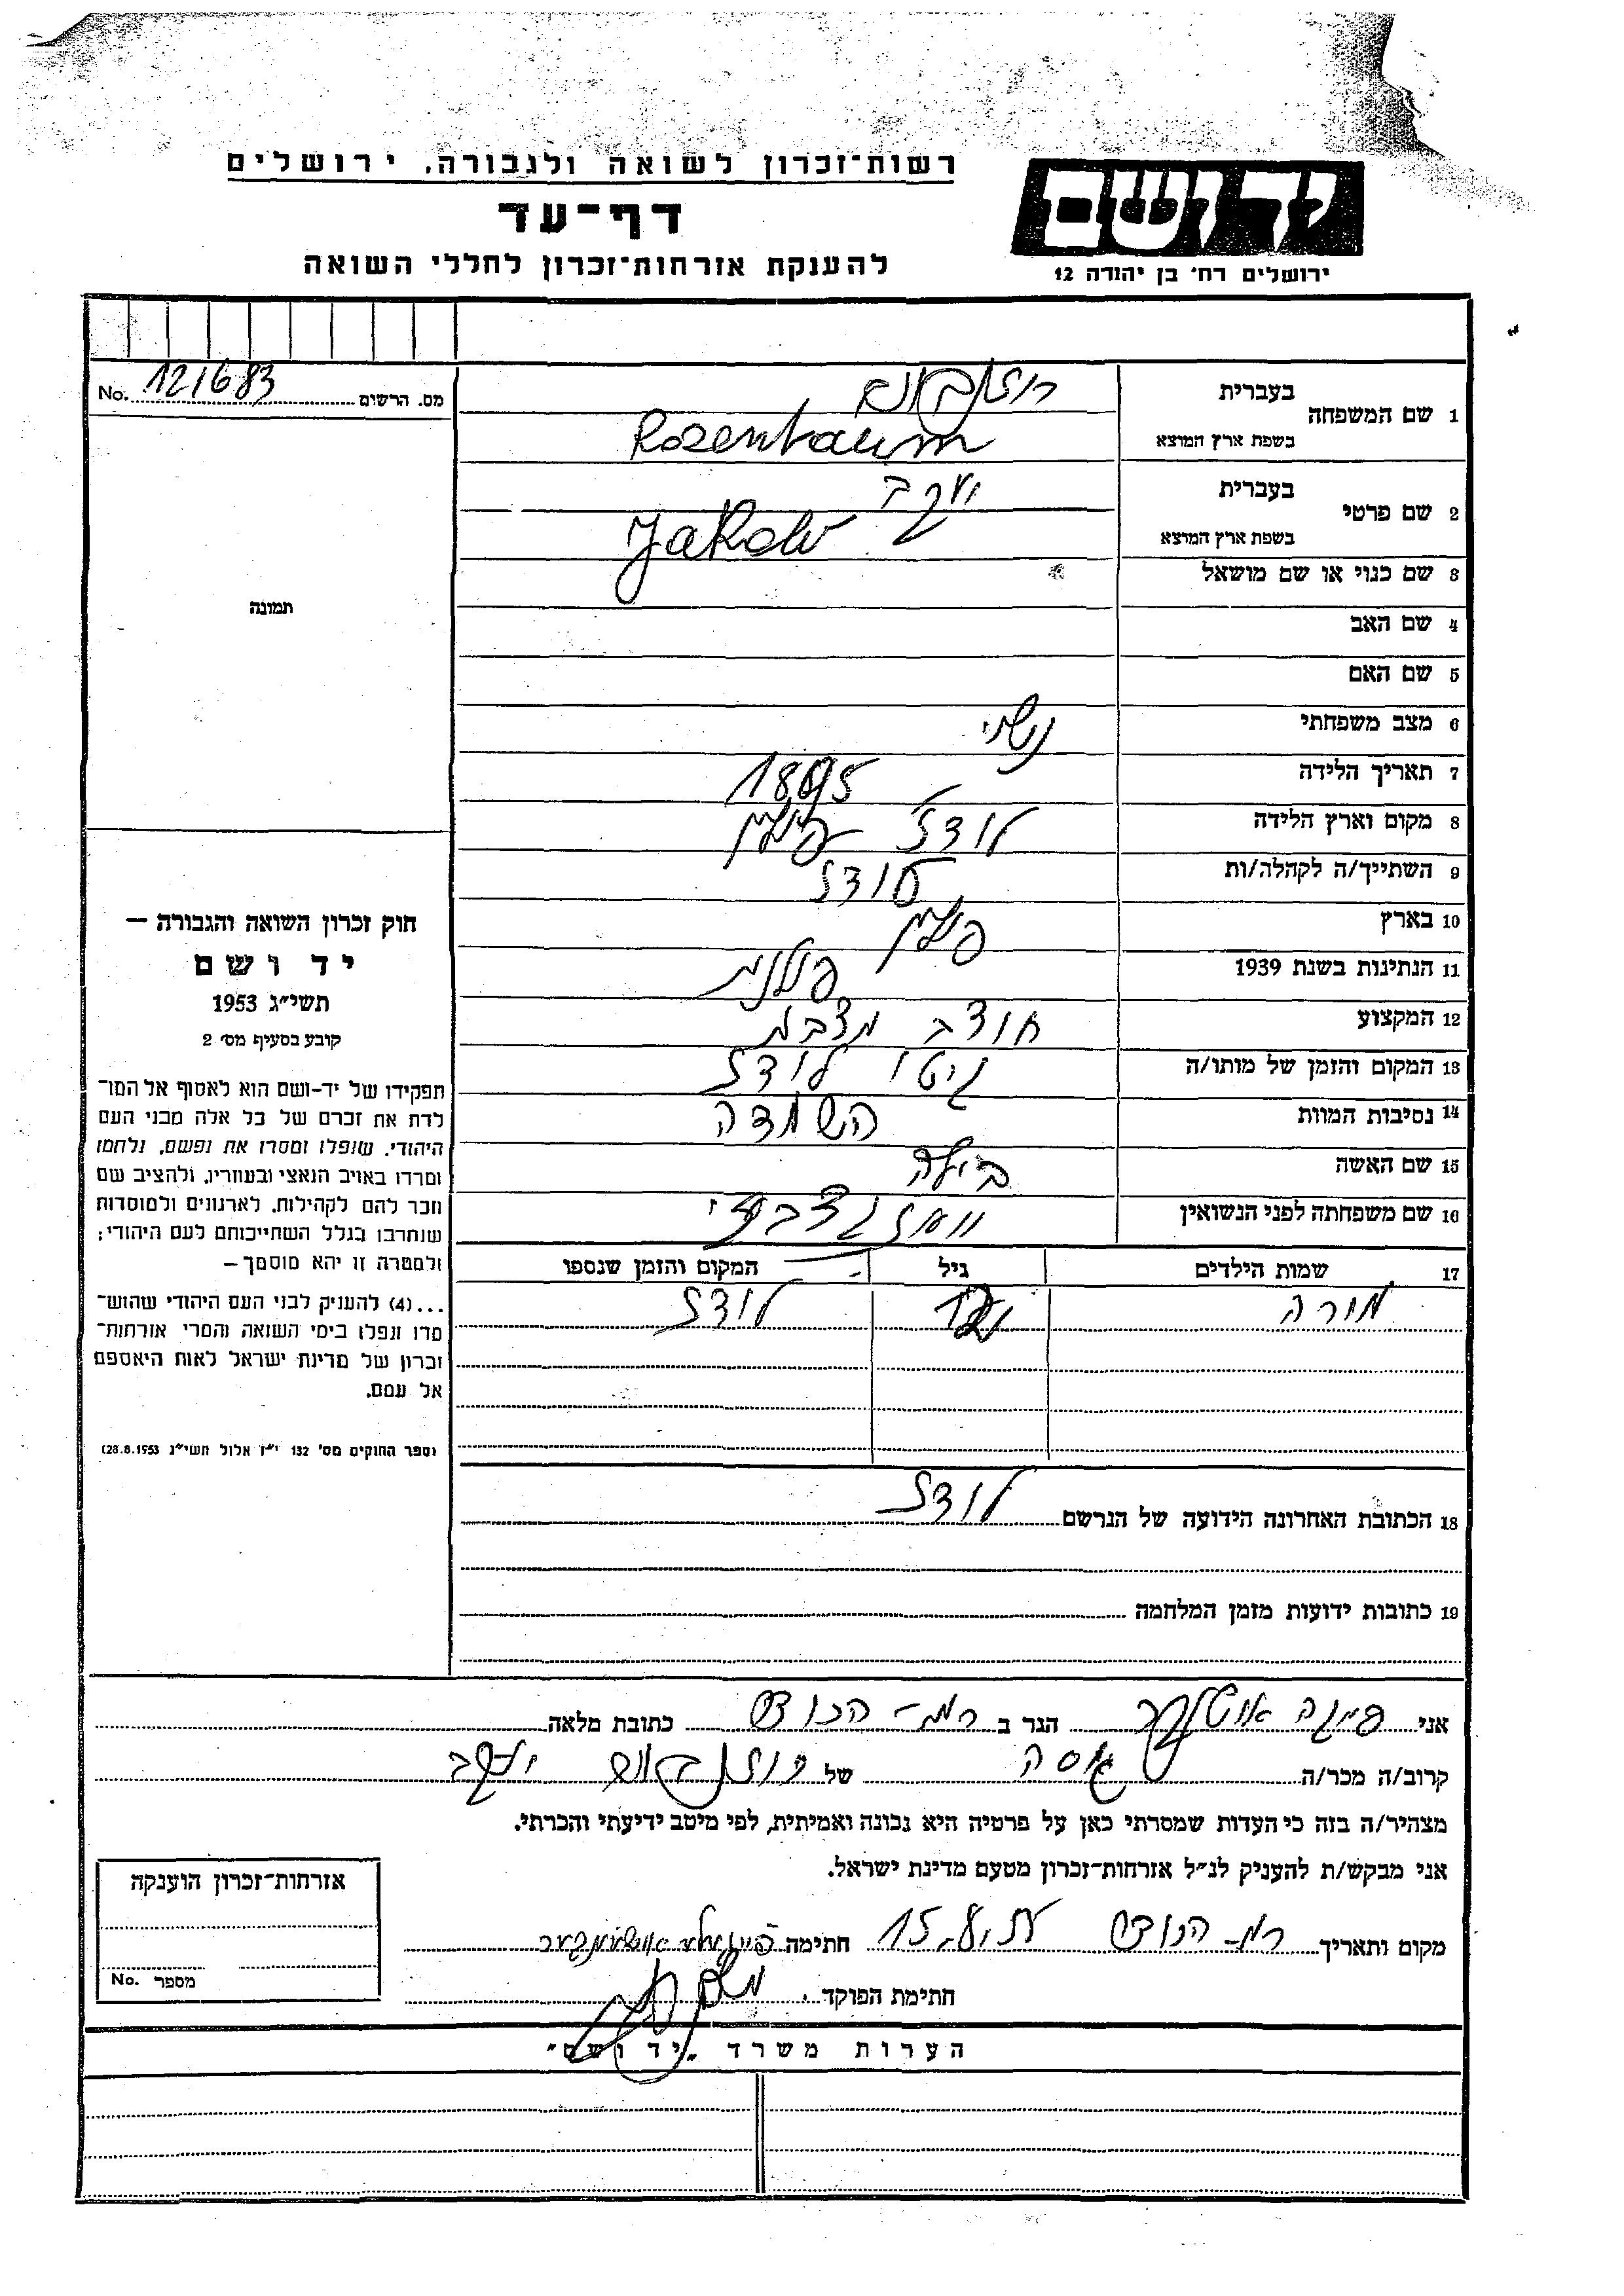 רשות־זכרון לשואה ולגבורה, ירושלים
יד ושם
דף־עד
להענקת אזרחות־זכרון לחללי השואה
ירושלים רח׳ בן יהודה 12
מס. הרשום 121683 No.
1 שם המשפחה
בעברית רוזנבוים
בשפת ארץ המוצא Rosenbaum
2 שם פרטי
בעברית יעקב
בשפת ארץ המוצא Jakob
3 שם כנוי או שם מושאל
תמונה
4 שם האב
5 שם האם
6 מצב משפחתי נשוי
7 תאריך הלידה 1895
8 מקום וארץ הלידה לודז פולין
9 השתייך/ה לקהלה/ות לודז
10 בארץ פולין
11 הנתינות בשנת 1939 פולנית
12 המקצוע חוצב מצבות
13 המקום והזמן של מותו/ה גיטו לודז
14 נסיבות המוות השמדה
15 שם האשה ביילה
16 שם משפחתה לפני הנשואין
17 שמות הילדים גיל המקום והזמן שנספו
לודז
18 הכתובת האחרונה הידועה של הנרשם לודז
19 כתובות ידועות מזמן המלחמה
חוק זכרון השואה והגבורה —
יד ושם
תשי״ג 1953
קובע בסעיף מס׳ 2
תפקידו של יד-ושם הוא לאסוף אל המו־
לדת את זכרם של כל אלה מבני העם
היהודי, שנפלו ומסרו את נפשם, נלחמו
ומרדו באויב הנאצי ובעוזריו, ולהציב שם
וזכר להם לקהילות, לארגונים ולמוסדות
שנחרבו בגלל השתייכותם לעם היהודי;
ולמטרה זו יהא מוסמך —
...(4) להעניק לבני העם היהודי שהוש־
מדו ונפלו בימי השואה והמרי אזרחות־
זכרון של מדינת ישראל לאות היאספם
אל עמם.
(ספר החוקים מס׳ 132 י״ז אלול תשי״ג 28.8.1953)
אני פייגה הגר ב רמת-הכובש כתובת מלאה
קרוב/ה מכר/ה גיסה של רוזנבוים יעקב
מצהיר/ה בזה כי העדות שמסרתי כאן על פרטיה היא נכונה ואמיתית, לפי מיטב ידיעתי והכרתי.
אני מבקש/ת להעניק לנ״ל אזרחות-זכרון מטעם מדינת ישראל.
מקום ותאריך רמת-הכובש חתימה
חתימת הפוקד
אזרחות־זכרון הוענקה
מספר No.
הערות משרד „יד ושם״